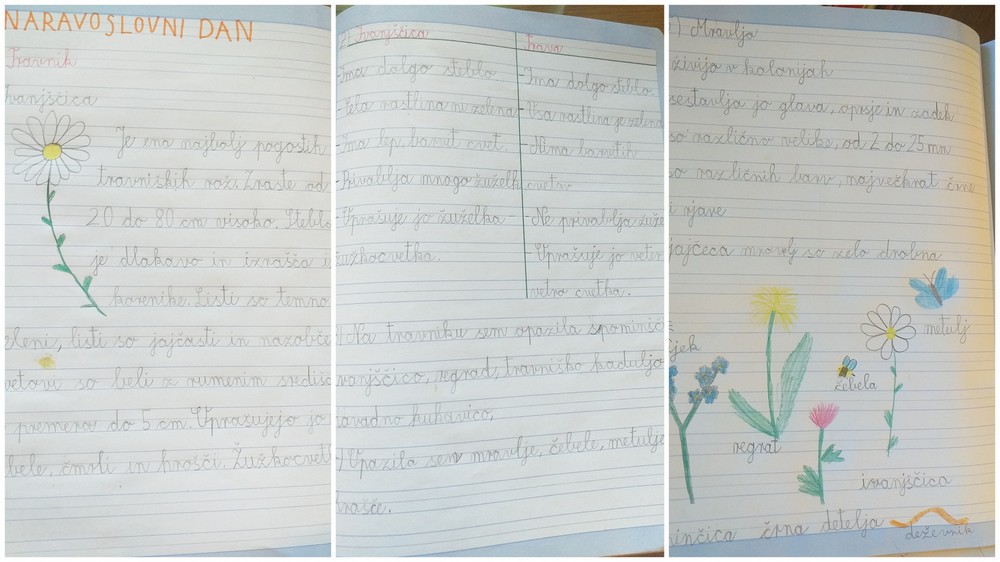 NARAVOSLOVNI DAN
Travnik
Ivanjščica
Je ena najbolj pogostih
travniških rož. Zraste od
20 do 80 cm visoko. Steblo
je dlakavo in izrašča i
korenike. Listi so temno
zeleni, listi so jajčasti in nazobče
cvetovi so beli z rumenim središč
premera do 5 cm. Uprašujejo jo
čebele, čmrli in hrošči. Žužkocvetk
2) Ivanjščica
Trava
-Ima dolgo steblo
-Ima dolgo steblo
-Cela rastlina ni zelena
-Vsa rastlina je zelena
-Ima lep, barvit cvet.
-Nima barvitih
cvetov
-Privablja mnogo žuželk
-Ne privablja žuže
-Uprašuje jo žuželka -
žužkocvetka.
-Uprašuje jo veter
vetrocvetka.
) Na travniku sem opazila spominšč
ivanjščico, regrat, travniško kaduljo
navadno kukavico,
) Opazila sem mravlje, čebele, metulje
hrošče.
) Mravlja
živijo v kolonijah
sestavlja jo glava, oprsje in zadek
so različno velike, od 2 do 25 mm
so različnih barv, največkrat črne
i rjave
jajčeca mravelj so zelo drobna
metulj
čebela
regrat
ivanjščica
inčica
črna detelja
deževnik